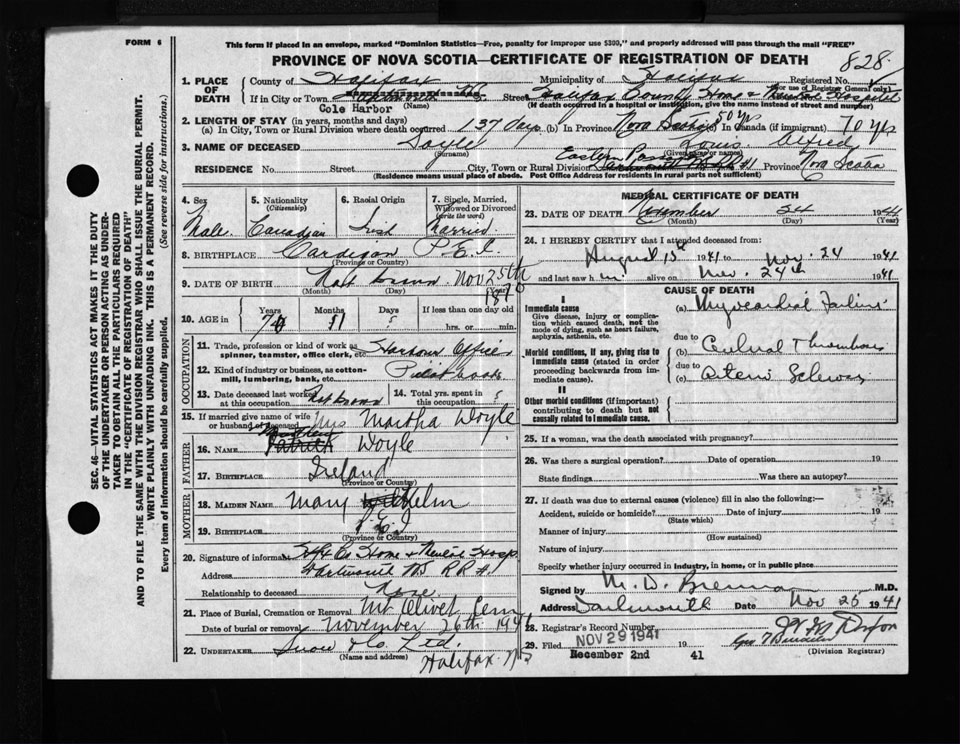 FORM 6
This form if placed in an envelope, marked "Dominion Statistics—Free, penalty for improper use $300," and properly addressed will pass through the mail "FREE"
PROVINCE OF NOVA SCOTIA—CERTIFICATE OF REGISTRATION OF DEATH
828
SEC. 46—VITAL STATISTICS ACT MAKES IT THE DUTY OF THE UNDERTAKER OR PERSON ACTING AS UNDERTAKER TO OBTAIN ALL THE PARTICULARS REQUIRED IN THE "CERTIFICATE OF REGISTRATION OF DEATH"
AND TO FILE THE SAME WITH THE DIVISION REGISTRAR WHO SHALL ISSUE THE BURIAL PERMIT.
WRITE PLAINLY WITH UNFADING INK. THIS IS A PERMANENT RECORD.
Every item of information should be carefully supplied. (See reverse side for instructions.)
1. PLACE OF DEATH County of Halifax Municipality of Halifax Registered No.
(For use of Registrar General only)
If in City or Town Street Halifax County Home & Mental Hospital
Cole Harbor (Name) (If death occurred in a hospital or institution, give the name instead of street and number)
2. LENGTH OF STAY (in years, months and days)
(a) In City, Town or Rural Division where death occurred 137 days (b) In Province Nova Scotia 50 yrs (c) In Canada (if immigrant) 70 yrs
3. NAME OF DECEASED Doyle Louis Alfred
(Surname) (Given name or names)
RESIDENCE No. Street City, Town or Rural Division Eastern Passage RR#1 Province Nova Scotia
(Residence means usual place of abode. Post Office Address for residents in rural parts not sufficient)
4. Sex Male
5. Nationality (Citizenship) Canadian
6. Racial Origin Irish
7. Single, Married, Widowed or Divorced (write the word) Married
8. BIRTHPLACE Cardigan P.E.I.
(Province or Country)
9. DATE OF BIRTH Not known Nov 25th 1870
(Month) (Day) (Year)
10. AGE in Years 70 Months 11 Days ? If less than one day old
hrs. or min.
OCCUPATION
11. Trade, profession or kind of work as spinner, teamster, office clerk, etc. Harbour Officer
12. Kind of industry or business, as cotton-mill, lumbering, bank, etc. Pilot boats
13. Date deceased last worked at this occupation Not known 14. Total yrs. spent in this occupation ?
15. If married give name of wife or husband of deceased Mrs Martha Doyle
FATHER
16. NAME Patrick Doyle
17. BIRTHPLACE Ireland
(Province or Country)
MOTHER
18. MAIDEN NAME Mary Whelm
19. BIRTHPLACE P.E.I
(Province or Country)
20. Signature of informant Hfx Co Home & Mental Hosp
Address Dartmouth NS RR #1
Relationship to deceased None
21. Place of Burial, Cremation or Removal Mt Olivet Cem
Date of burial or removal November 26th 1941
22. UNDERTAKER Snow & Co Ltd
(Name and address) Halifax NS
MEDICAL CERTIFICATE OF DEATH
23. DATE OF DEATH November 24 1941
(Month) (Day) (Year)
24. I HEREBY CERTIFY that I attended deceased from:
August 15th 1941 to Nov. 24 1941
and last saw him alive on Nov. 24th 1941
CAUSE OF DEATH
I
Immediate cause
Give disease, injury or complication which caused death, not the mode of dying, such as heart failure, asphyxia, asthenia, etc.
(a) Myocardial Failure
due to
Morbid conditions, if any, giving rise to immediate cause (stated in order proceeding backwards from immediate cause).
(b) Cerebral Thrombosis
due to
(c) Arterio Sclerosis
II
Other morbid conditions (if important) contributing to death but not causally related to immediate cause.
25. If a woman, was the death associated with pregnancy?
26. Was there a surgical operation? Date of operation 19
State findings Was there an autopsy?
27. If death was due to external causes (violence) fill in also the following:—
Accident, suicide or homicide? Date of injury 19
(State which)
Manner of injury
(How sustained)
Nature of injury
Specify whether injury occurred in industry, in home, or in public place
Signed by M. D. Brennan M.D.
Address Dartmouth Date Nov 25 1941
28. Registrar's Record Number
29. Filed NOV 29 1941 19
December 2nd 41 (Division Registrar)